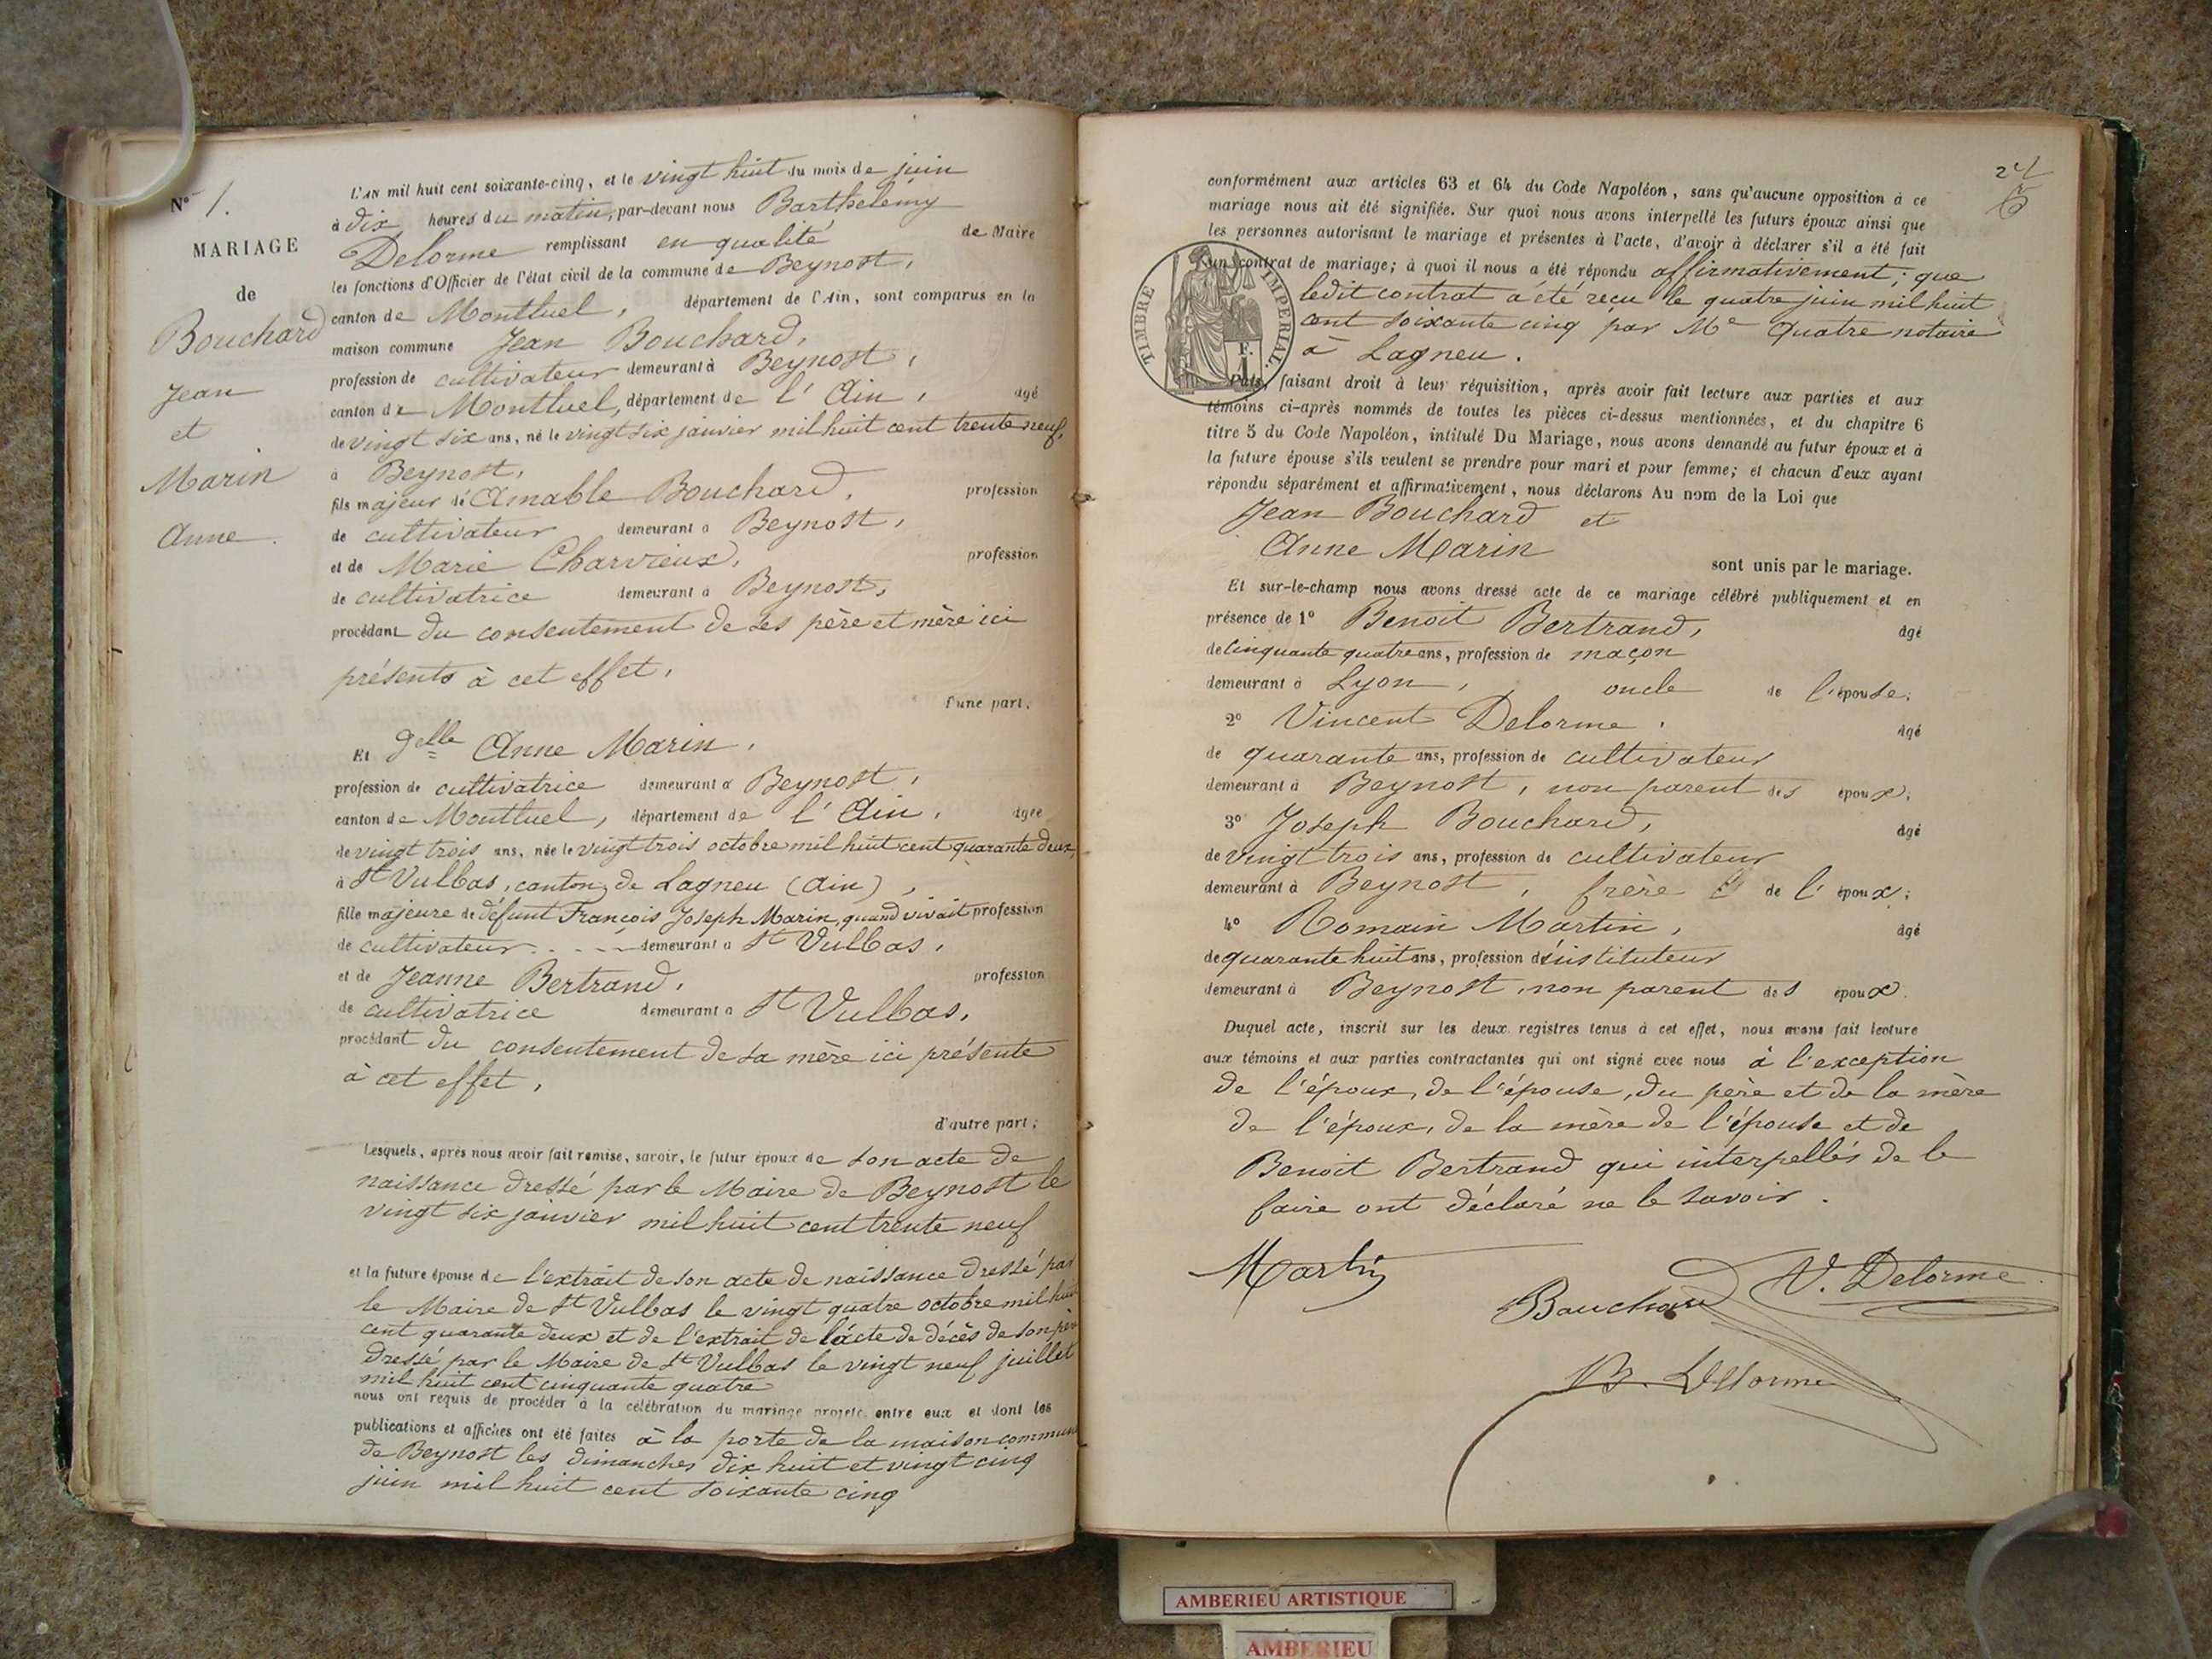 N° 1.
MARIAGE
de
Bouchard
Jean
et
Marin
Anne.
L'AN mil huit cent soixante-cinq, et le vingt huit du mois de juin
à dix heures du matin, par-devant nous Barthélemy
Delorme remplissant en qualité de Maire
les fonctions d'Officier de l'état civil de la commune de Beynost,
canton de Montluel, département de l'Ain, sont comparus en la
maison commune Jean Bouchard,
profession de cultivateur demeurant à Beynost,
canton de Montluel, département de l'Ain, âgé
de vingt six ans, né le vingt six janvier mil huit cent trente neuf,
à Beynost,
fils majeur de Amable Bouchard, profession
de cultivateur demeurant à Beynost,
et de Marie Charvieux, profession
de cultivatrice demeurant à Beynost,
procédant du consentement de ses père et mère ici
présents à cet effet,
d'une part.
Et Delle Anne Marin,
profession de cultivatrice demeurant à Beynost,
canton de Montluel, département de l'Ain, âgée
de vingt trois ans, née le vingt trois octobre mil huit cent quarante deux,
à St Vulbas, canton de Lagneu (Ain),
fille majeure de défunt François Joseph Marin, quand vivait profession
de cultivateur demeurant à St Vulbas,
et de Jeanne Bertrand, profession
de cultivatrice demeurant à St Vulbas,
procédant du consentement de sa mère ici présente
à cet effet,
d'autre part;
Lesquels, après nous avoir fait remise, savoir, le futur époux de son acte de
naissance dressé par le Maire de Beynost le
vingt six janvier mil huit cent trente neuf
et la future épouse de l'extrait de son acte de naissance dressé par
le Maire de St Vulbas le vingt quatre octobre mil huit
cent quarante deux et de l'extrait de l'acte de décès de son père
dressé par le Maire de St Vulbas le vingt neuf juillet
mil huit cent cinquante quatre
nous ont requis de procéder à la célébration du mariage projeté entre eux et dont les
publications et affiches ont été faites à la porte de la maison commune
de Beynost les dimanches dix huit et vingt cinq
juin mil huit cent soixante cinq
conformément aux articles 63 et 64 du Code Napoléon, sans qu'aucune opposition à ce
mariage nous ait été signifiée. Sur quoi nous avons interpellé les futurs époux ainsi que
les personnes autorisant le mariage et présentes à l'acte, d'avoir à déclarer s'il a été fait
un contrat de mariage; à quoi il nous a été répondu affirmativement; que
ledit contrat a été reçu le quatre juin mil huit
cent soixante cinq par Me Quatre notaire
à Lagneu.
TIMBRE IMPERIAL
1 F.
Puis, faisant droit à leur réquisition, après avoir fait lecture aux parties et aux
témoins ci-après nommés de toutes les pièces ci-dessus mentionnées, et du chapitre 6
titre 5 du Code Napoléon, intitulé Du Mariage, nous avons demandé au futur époux et à
la future épouse s'ils veulent se prendre pour mari et pour femme; et chacun d'eux ayant
répondu séparément et affirmativement, nous déclarons Au nom de la Loi que
Jean Bouchard et
Anne Marin
sont unis par le mariage.
Et sur-le-champ nous avons dressé acte de ce mariage célébré publiquement et en
présence de 1° Benoit Bertrand, âgé
de cinquante quatre ans, profession de maçon
demeurant à Lyon, oncle de l'épouse;
2° Vincent Delorme, âgé
de quarante ans, profession de cultivateur
demeurant à Beynost, non parent des époux;
3° Joseph Bouchard, âgé
de vingt trois ans, profession de cultivateur
demeurant à Beynost, frère de l'époux;
4° Romain Martin, âgé
de quarante huit ans, profession d'instituteur
demeurant à Beynost, non parent des époux.
Duquel acte, inscrit sur les deux registres tenus à cet effet, nous avons fait lecture
aux témoins et aux parties contractantes qui ont signé avec nous à l'exception
de l'époux, de l'épouse, du père et de la mère
de l'époux, de la mère de l'épouse et de
Benoit Bertrand qui interpellés de le
faire ont déclaré ne le savoir.
Martin
Bouchard
V. Delorme
B. Delorme
AMBERIEU ARTISTIQUE
AMBERIEU